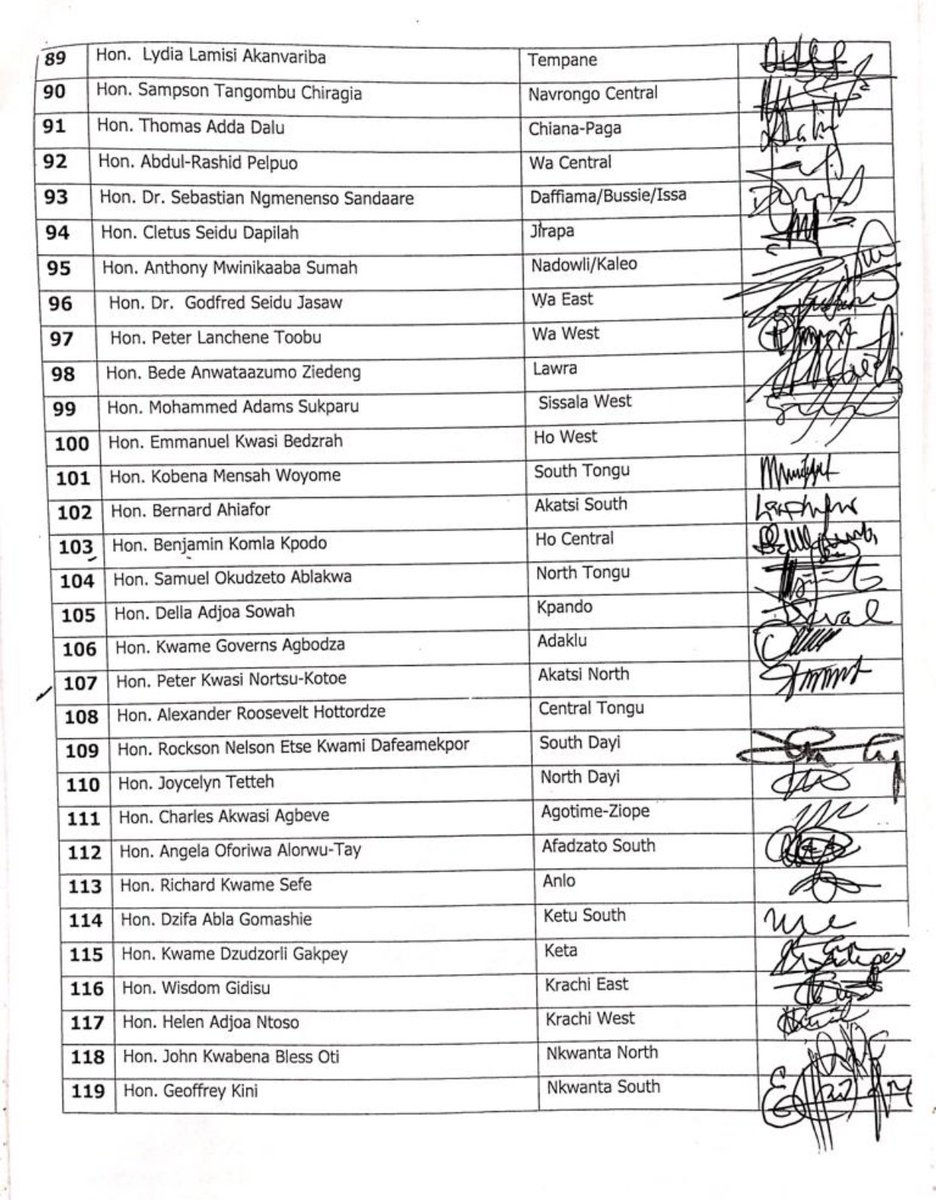 89 Hon. Lydia Lamisi Akanvariba Tempane
90 Hon. Sampson Tangombu Chiragia Navrongo Central
91 Hon. Thomas Adda Dalu Chiana-Paga
92 Hon. Abdul-Rashid Pelpuo Wa Central
93 Hon. Dr. Sebastian Ngmenenso Sandaare Daffiama/Bussie/Issa
94 Hon. Cletus Seidu Dapilah Jirapa
95 Hon. Anthony Mwinikaaba Sumah Nadowli/Kaleo
96 Hon. Dr. Godfred Seidu Jasaw Wa East
97 Hon. Peter Lanchene Toobu Wa West
98 Hon. Bede Anwataazumo Ziedeng Lawra
99 Hon. Mohammed Adams Sukparu Sissala West
100 Hon. Emmanuel Kwasi Bedzrah Ho West
101 Hon. Kobena Mensah Woyome South Tongu
102 Hon. Bernard Ahiafor Akatsi South
103 Hon. Benjamin Komla Kpodo Ho Central
104 Hon. Samuel Okudzeto Ablakwa North Tongu
105 Hon. Della Adjoa Sowah Kpando
106 Hon. Kwame Governs Agbodza Adaklu
107 Hon. Peter Kwasi Nortsu-Kotoe Akatsi North
108 Hon. Alexander Roosevelt Hottordze Central Tongu
109 Hon. Rockson Nelson Etse Kwami Dafeamekpor South Dayi
110 Hon. Joycelyn Tetteh North Dayi
111 Hon. Charles Akwasi Agbeve Agotime-Ziope
112 Hon. Angela Oforiwa Alorwu-Tay Afadzato South
113 Hon. Richard Kwame Sefe Anlo
114 Hon. Dzifa Abla Gomashie Ketu South
115 Hon. Kwame Dzudzorli Gakpey Keta
116 Hon. Wisdom Gidisu Krachi East
117 Hon. Helen Adjoa Ntoso Krachi West
118 Hon. John Kwabena Bless Oti Nkwanta North
119 Hon. Geoffrey Kini Nkwanta South